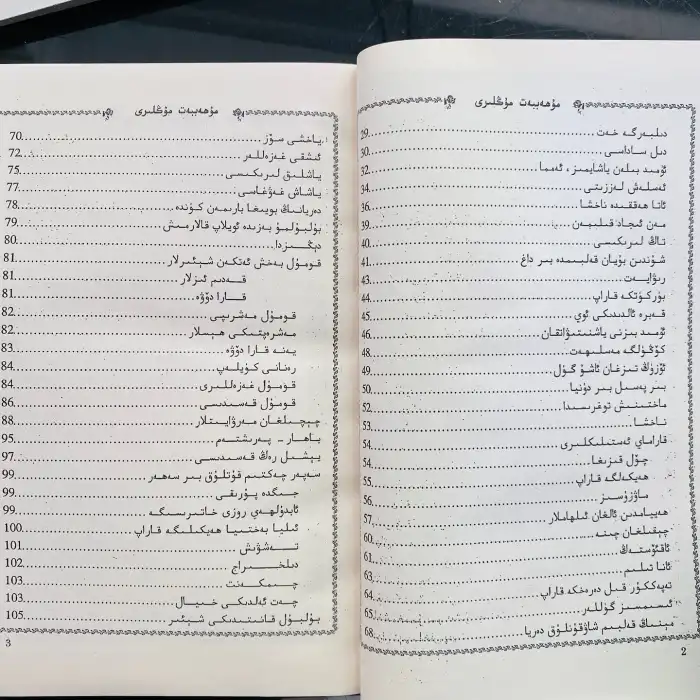 مۇھەببەت مۇڭلىرى
دىلبەرگە خەت ........ 29
دىل ساداسى ........ 30
ئۈمىد بىلەن ياشايمىز، ئەمما ........ 32
ئەسلىش لەززىتى ........ 34
ئانا ھەققىدە ناخشا ........ 36
مەن ئىجاد قىلىمەن ........ 39
تاڭ لىرىكىسى ........ 40
شۇندىن بۇيان قەلبىمدە بىر داغ ........ 41
رىۋايەت ........ 43
بۈركۈتكە قاراپ ........ 44
قەبرە ئالدىدىكى ئوي ........ 45
ئۈمىد بىزنى ياشنىتىۋاتقان ........ 46
كۆڭۈلگە مەسلىھەت ........ 48
ئۈزۈڭ تىزغان ئاشۇ گۈل ........ 49
بىر پەسىل بىر دۇنيا ........ 50
ماختىنىش توغرىسىدا ........ 52
ناخشا ........ 53
قاراماي ئەستىلىكلىرى ........ 54
چۆل قىزىغا ........ 54
ھەيكەلگە قاراپ ........ 55
ماۋزۇسىز ........ 56
ھەييامدىن ئالغان ئىلھاملار ........ 57
چېقىلغان چىنە ........ 60
ئاقئۆستەڭ ........ 61
ئانا تىلىم ........ 63
تەپەككۇر قىل دەرەخكە قاراپ ........ 64
ئىسىمسىز گۈللەر ........ 65
مېنىڭ قەلبىم شاۋقۇنلۇق دەريا ........ 68
2
مۇھەببەت مۇڭلىرى
ياخشى سۆز ........ 70
ئىشقى غەزەللەر ........ 72
ياشلىق لىرىكىسى ........ 75
ياشاش غەۋغاسى ........ 77
دەريانىڭ بويىغا بارىمەن كۈندە ........ 78
بۇلبۇلمۇ بەزىدە ئويلاپ قالارمىش ........ 79
دېڭىزدا ........ 80
قومۇل بەخش ئەتكەن شېئىرلار ........ 81
قەدىم ئىزلار ........ 81
قارا دۆۋە ........ 81
قومۇل مەشرىپى ........ 82
مەشرەپتىكى ھېسلار ........ 82
يەنە قارا دۆۋە ........ 83
رەنانى كۈيلەپ ........ 84
قومۇل غەزەللىرى ........ 84
قومۇل قەسىدىسى ........ 86
چېچىلغان مەرۋايىتلار ........ 88
باھار - پەرىشتەم ........ 95
يېشىل رەڭ قەسىدىسى ........ 97
سەپەر چەكتىم قۇتلۇق بىر سەھەر ........ 99
جىگدە پۇرىقى ........ 99
ئابدۇلھەي روزى خاتىرىسىگە ........ 99
ئىليا بەختىيا ھەيكىلىگە قاراپ ........ 100
تەشۋىش ........ 101
دىلخىراج ........ 102
چىمكەنت ........ 103
چەت ئەلدىكى خىيال ........ 103
بۇلبۇل قانىتىدىكى شېئىر ........ 105
3